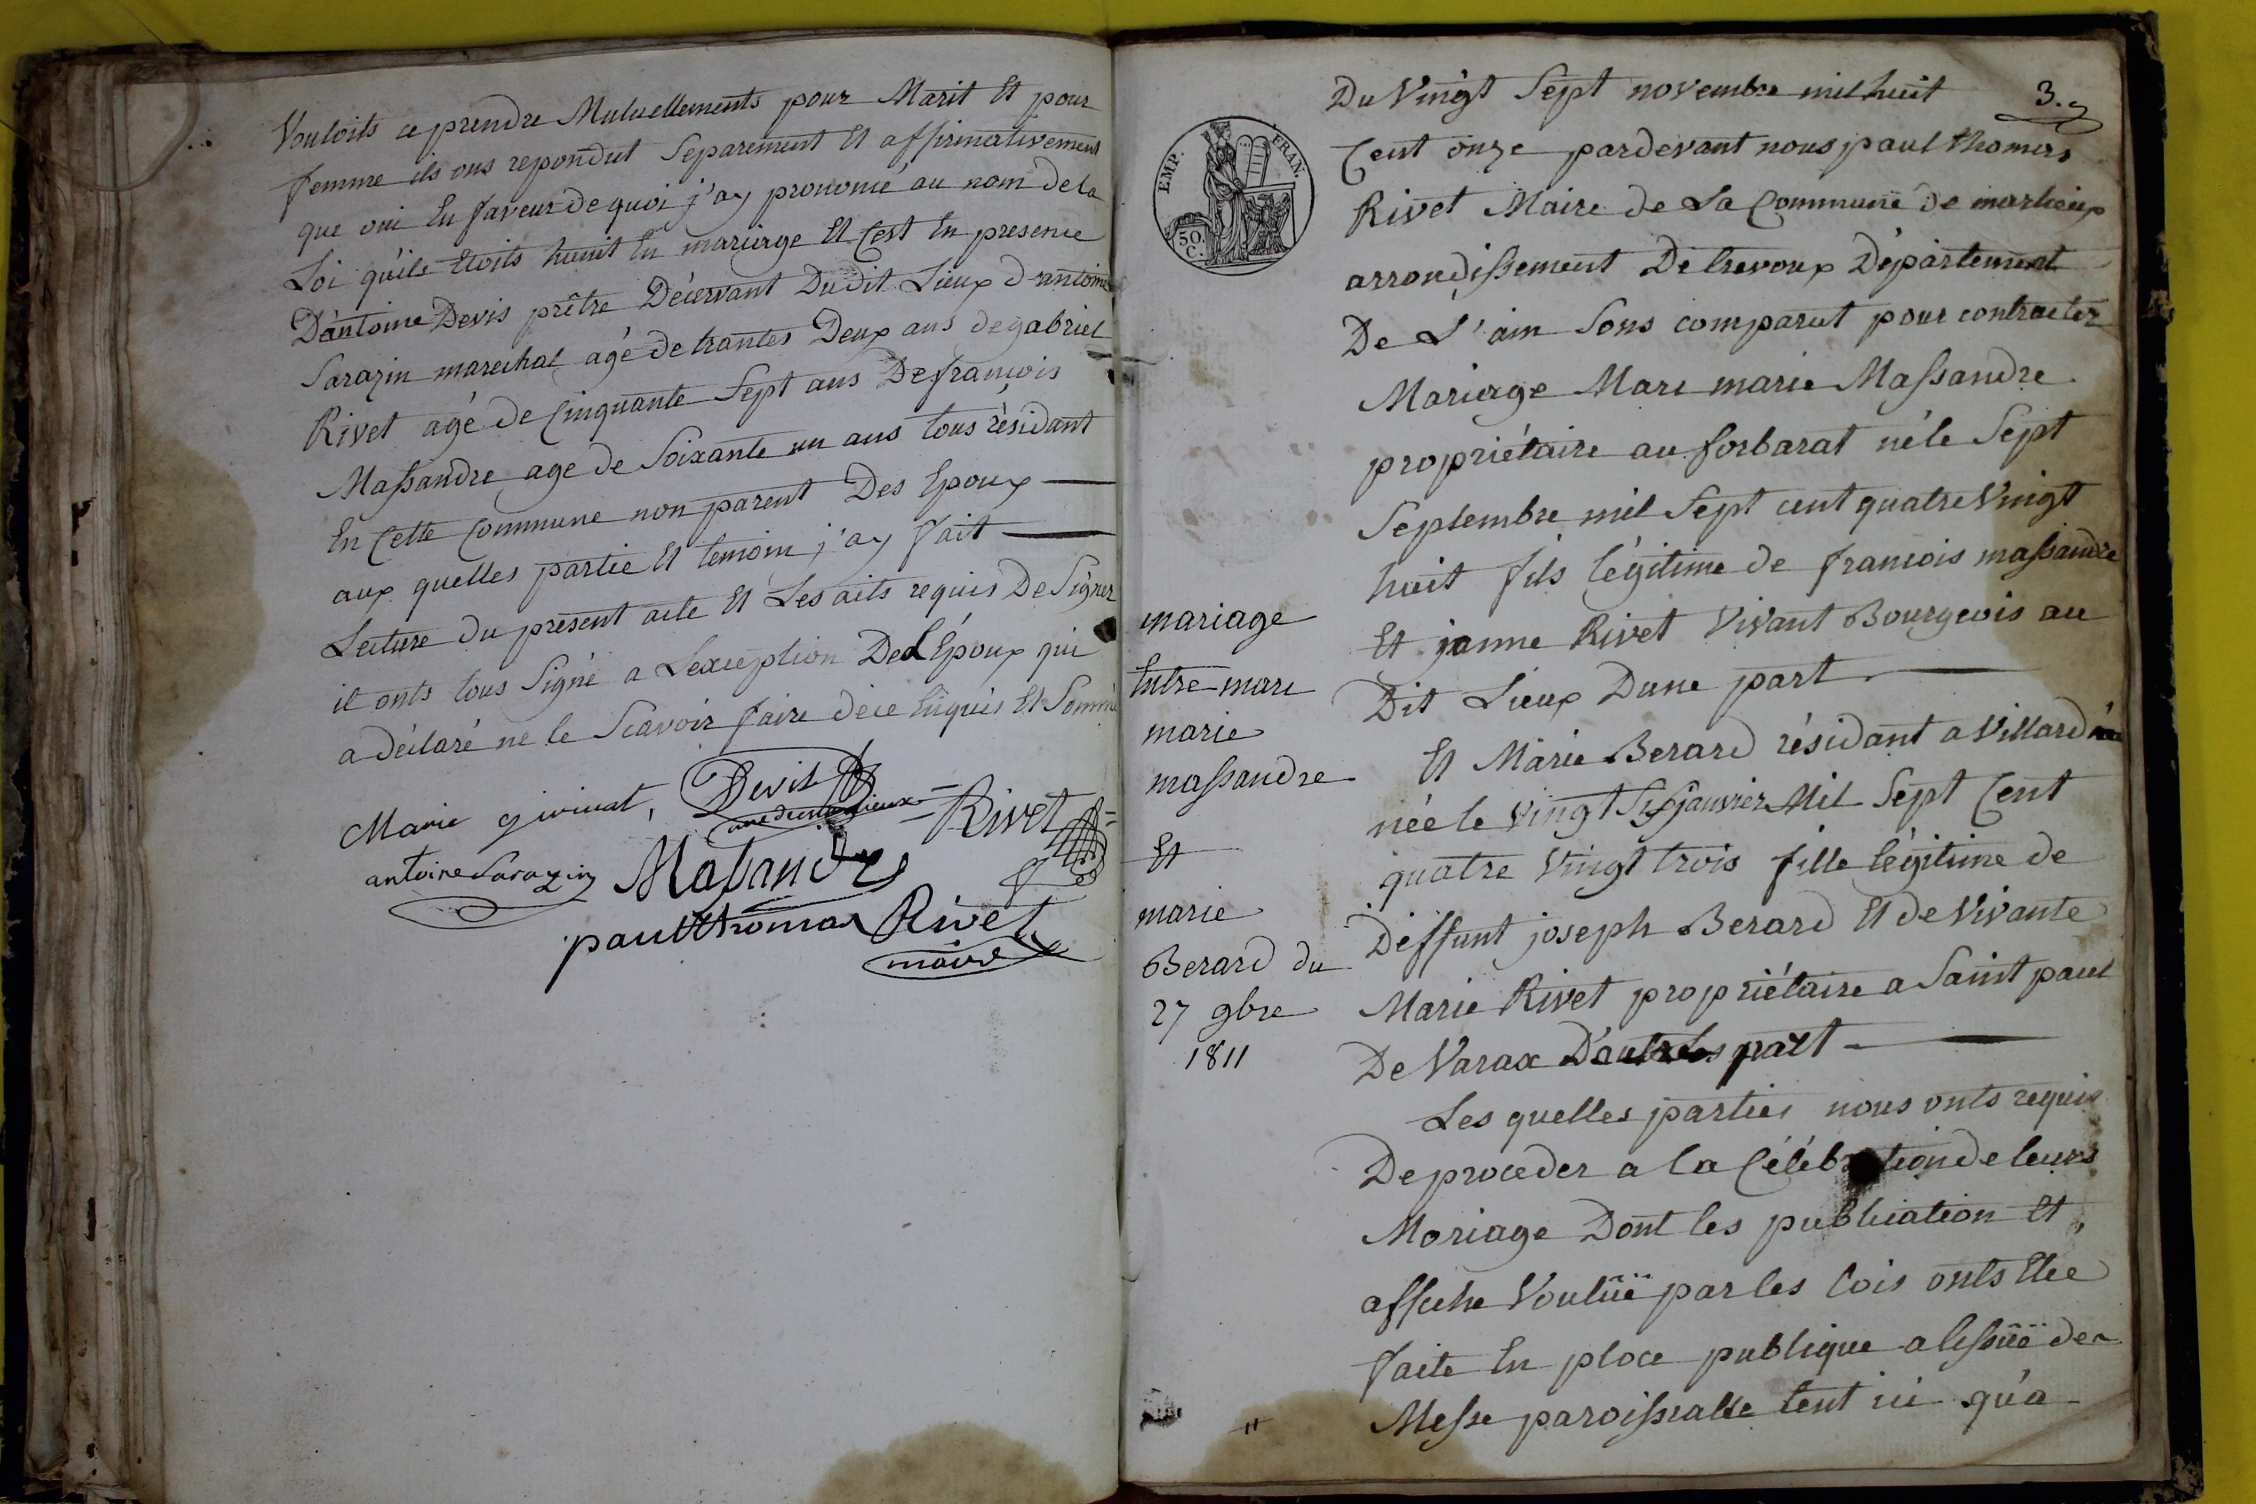 Vouloits ce prendre Mutuellements pour Marit Et pour
femme ils ons repondut Separement Et affirmativement
que oui En faveur de quoi j'ay prononcé au nom de la
Loi qu'ils Etoits hunit En mariage Et Cest En presence
D'antoine Devis prêtre Décervant Dudit Lieux d'antoine
Sarazin marechal agé de trantes Deux ans de gabriel
Rivet agé de Cinquante Sept ans De françois
Massandre age de Soixante un ans tous résidant
En Cette Commune non parent Des Epoux
aux quelles partie Et temoin j'ay fait
Lecture du present acte Et Les aits requis De Signer
il onts tous Signé a Lexception Del Epoux qui
a déclaré ne le Scavoir faire de ce Enquis Et Sommé
Marie givinat, Devis
Rivet
antoine Sarazin Massandre
paul thomas Rivet
maire
3.
EMP. FRAN.
50.
C.
Du Vingt Sept novembre mil huit
Cent onze pardevant nous paul thomas
Rivet Maire de La Commune de marlieux
arrondissement De trevoux Département
De L'ain Sons comparut pour contracter
Mariage Marc marie Massandre
propriétaire au forbarat né le Sept
Septembre mil Sept cent quatre Vingt
huit fils légitime de francois massandre
Et janne Rivet Vivant Bourgeois au
Dit Lieux Dune part
Et Marie Berard résidant a Villard
née le Vingt Six janvier Mil Sept Cent
quatre Vingt trois fille légitime de
Deffunt joseph Berard Et de Vivante
Marie Rivet propriétaire a Saint paul
De Varax D'autres part
Les quelles parties nous onts requis
De proceder a la Célébration de leurs
Mariage Dont les publication Et
affiche Voulüe par les Lois onts Etée
faite En place publique a lissüe de
Messe paroissialle tent ici qu'a
mariage
Entre marc
marie
massandre
Et
marie
Berard du
27 9bre
1811